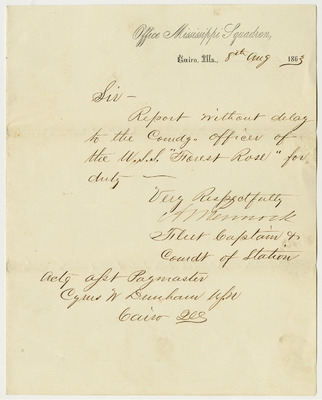 Office Mississippi Squadron,
Cairo, Ills., 8th Aug 1863
Sir —
Report without delay
to the Comdg. Officer of
the U.S.S. "Forest Rose" for
duty —
Very Respectfully
A M Pennock
Fleet Captain &
Comdt of Station
Actg asst Paymaster
Cyrus W Dunham USN
Cairo Ills